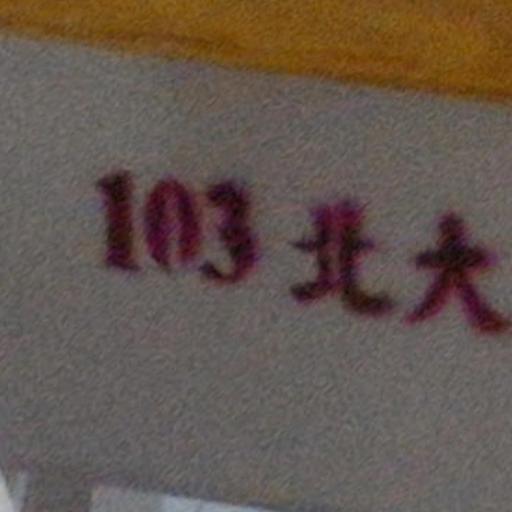 103 北大